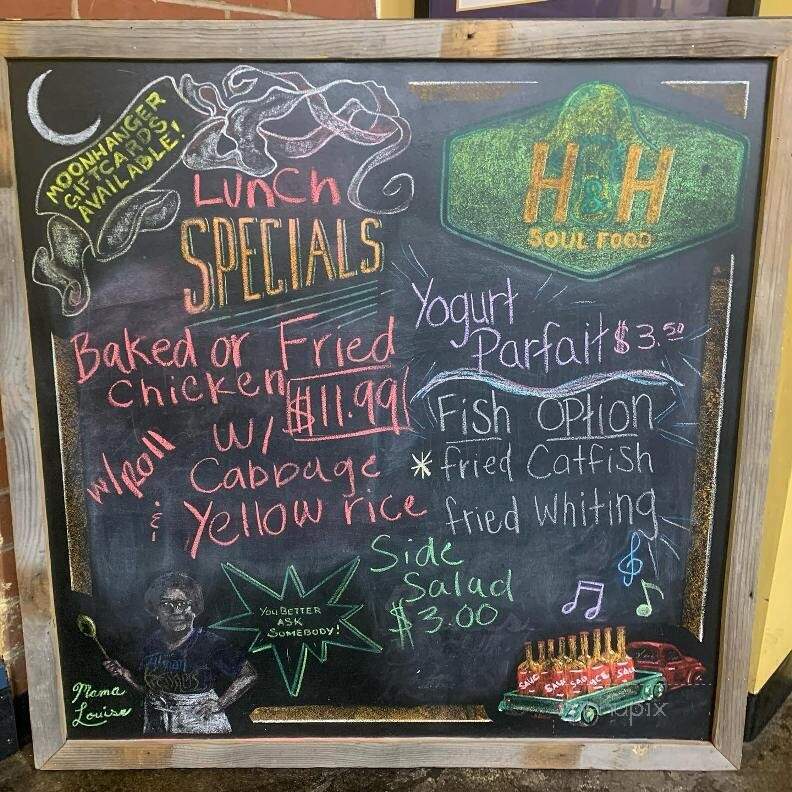 MOONHANGER
GIFTCARDS
AVAILABLE!
LUNCH
SPECIALS
Baked or Fried
Chicken
$11.99
w/
Cabbage
w/roll
& Yellow rice
H&H
SOUL FOOD
Yogurt
Parfait $3.50
Fish Option
* fried Catfish
fried Whiting
Side
Salad
$3.00
YOU BETTER
ASK
SOMEBODY!
Mama
Louise
SAUC